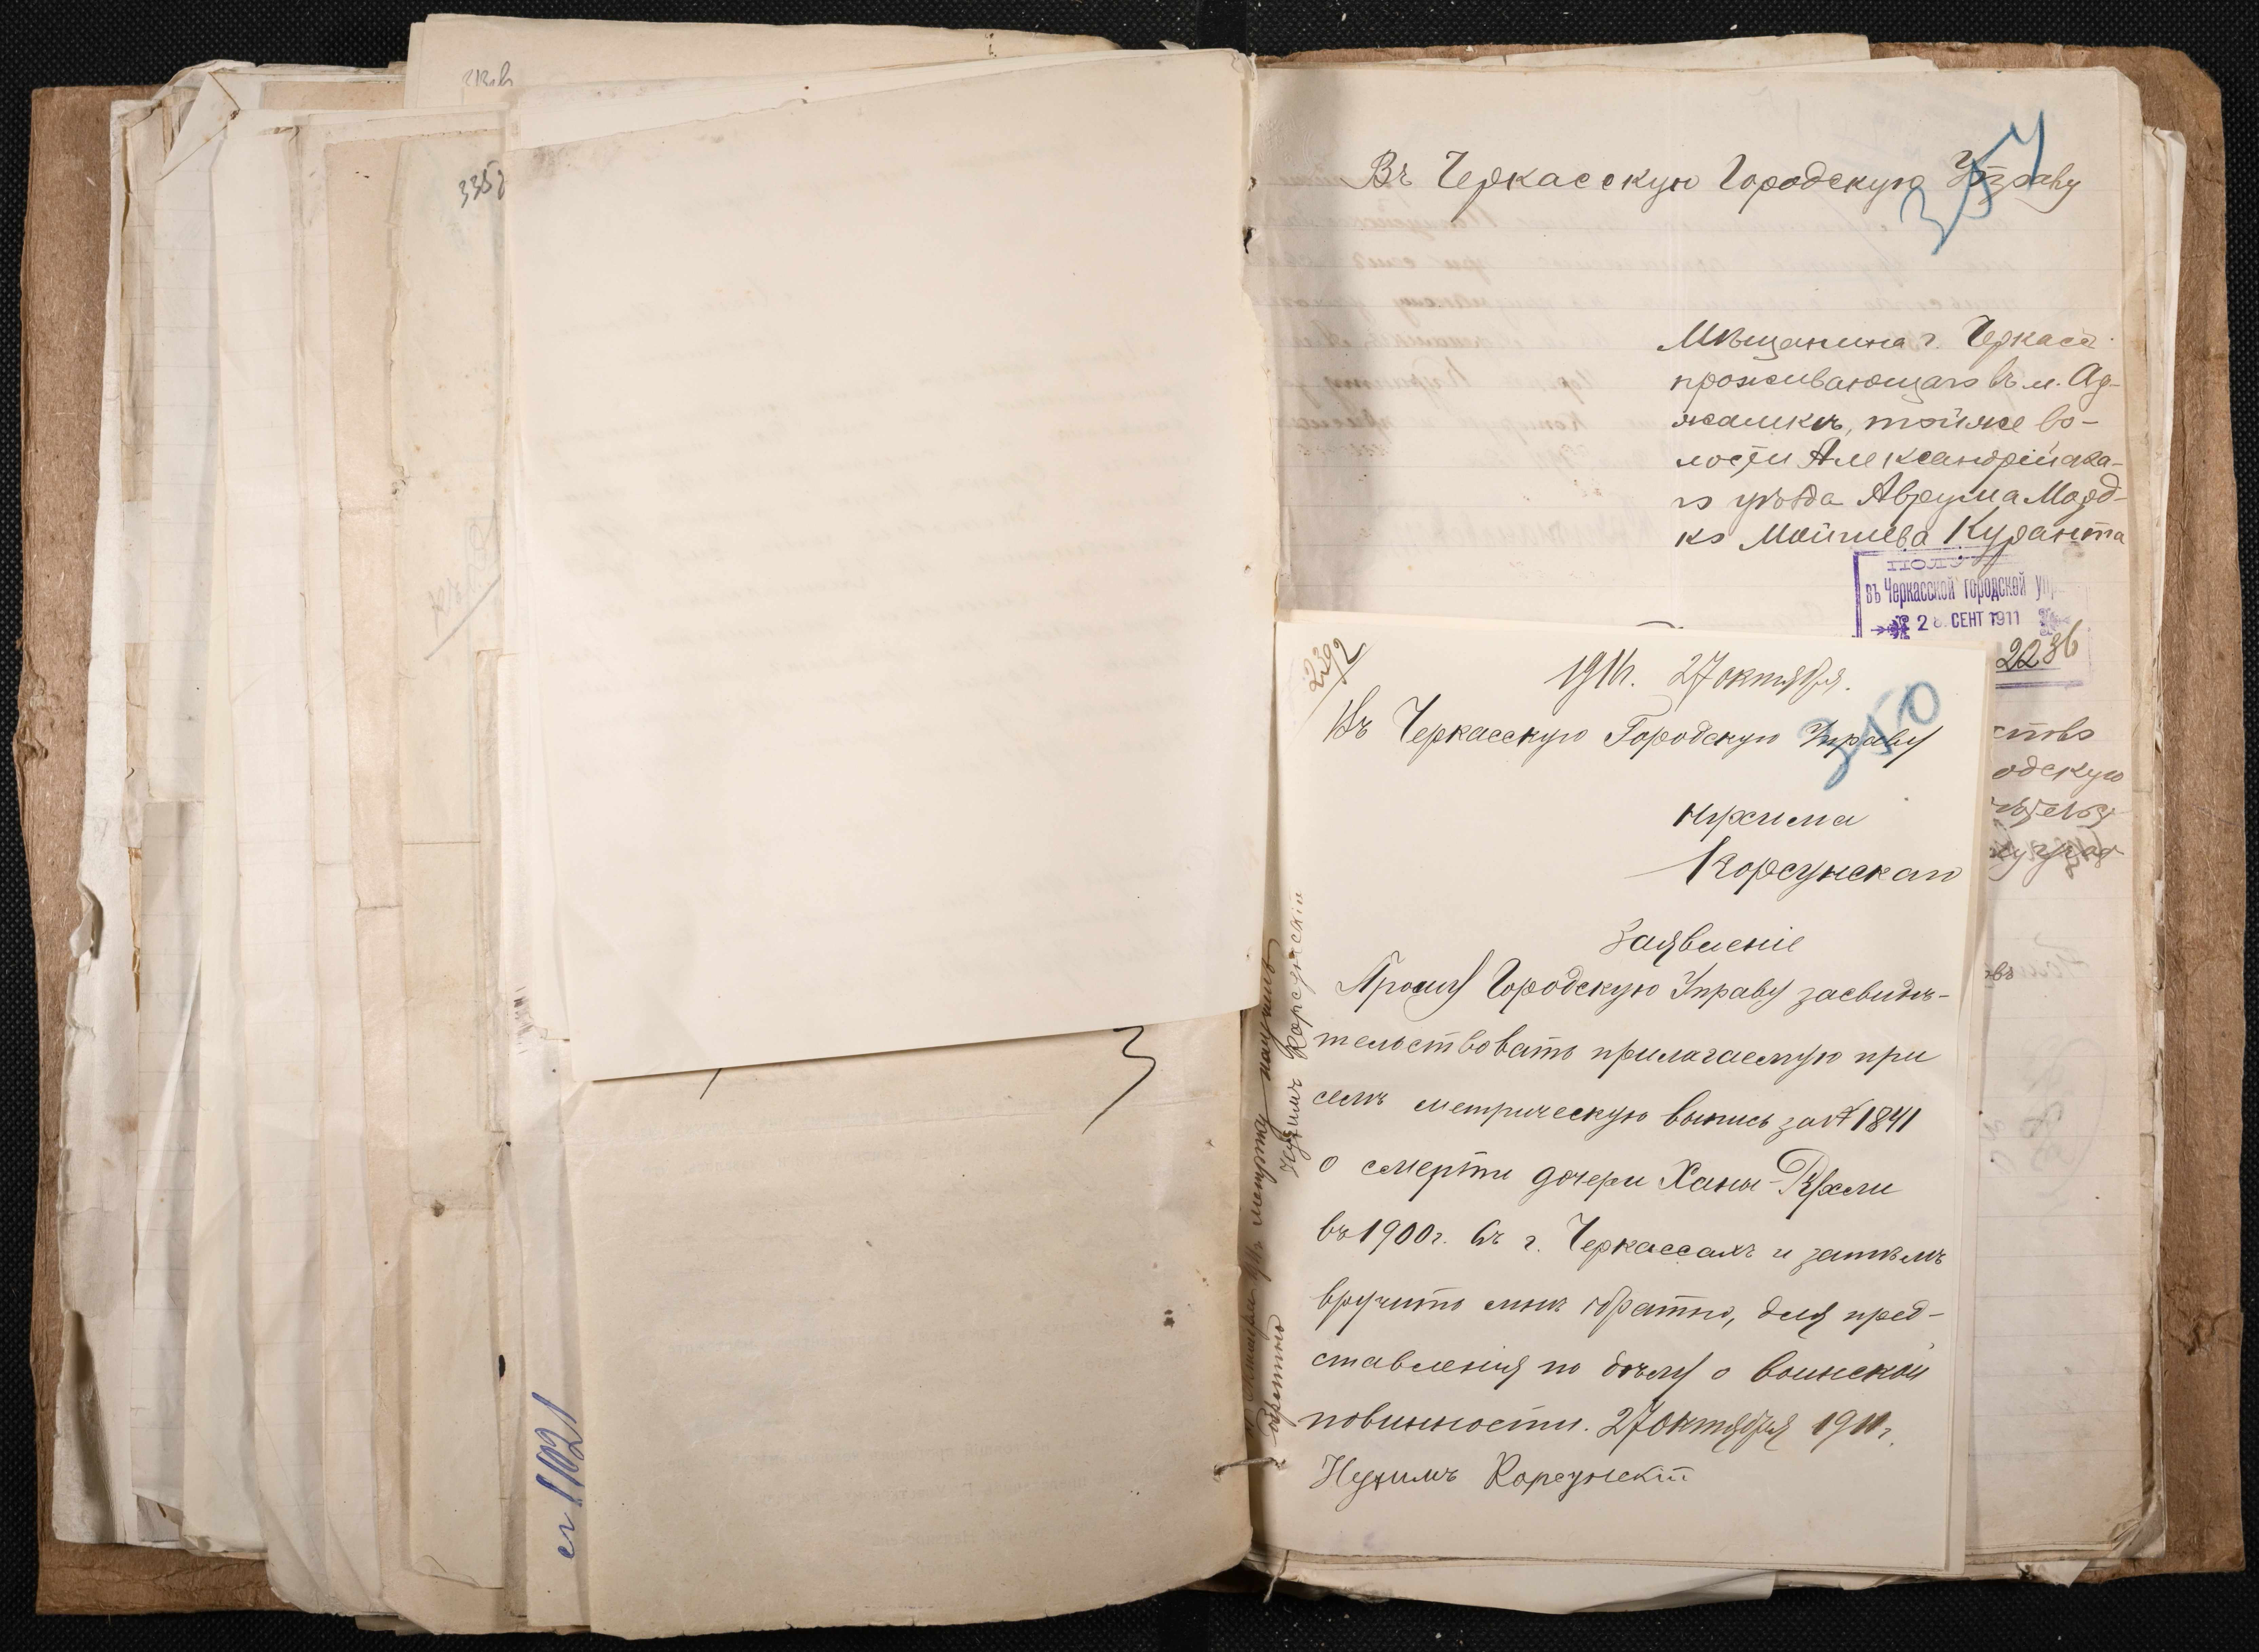 335
Въ Черкасскую Городскую Управу
Мѣщанина г. Черкасъ
проживающаго въ м. Ад-
жамкѣ, той же во-
лости Александрійска-
го уѣзда Аврума Морд-
ко Мойшева Куранта
въ Черкасской городской упр
СЕНТ 1911
2236
ство
одскую
2392
1911г. 27 октября.
350
Въ Черкасскую Городскую Управу
Нухима
Корсунскаго
Заявленіе
Прошу Городскую Управу засвидѣ-
тельствовать прилагаемую при
семъ метрическую выпись за № 1841
о смерти дочери Ханы-Рухли
въ 1900г. въ г. Черкассахъ и затѣмъ
вручить мнѣ обратно, для пред-
ставленія по дѣлу о воинской
повинности. 27 октября 1911г.
Нухимъ Корсунскій
метрику получилъ
обратно
Нухимъ Корсунскій
ег 1102